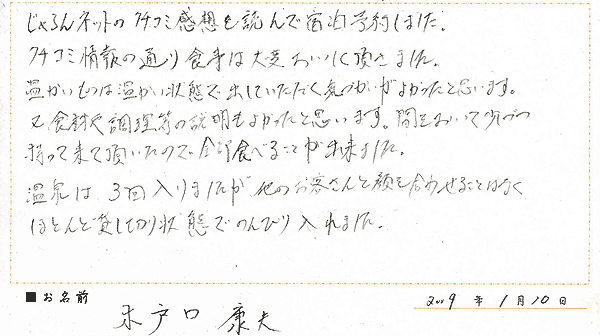 じゃらんネットのクチコミ感想を読んで宿泊予約しました。
クチコミ情報の通り食事は大変おいしく頂きました。
温かいものは温かい状態で出していただく気づかいがよかったと思います。
又食材や調理等の説明もよかったと思います。間をおいて少しづつ
持って来て頂いたので全部食べることが出来ました。
温泉は、3回入りましたが他のお客さんと顔を合わせることはなく
ほとんど貸し切り状態でのんびり入れました。
■お名前
木戸口 康夫
2009年1月10日